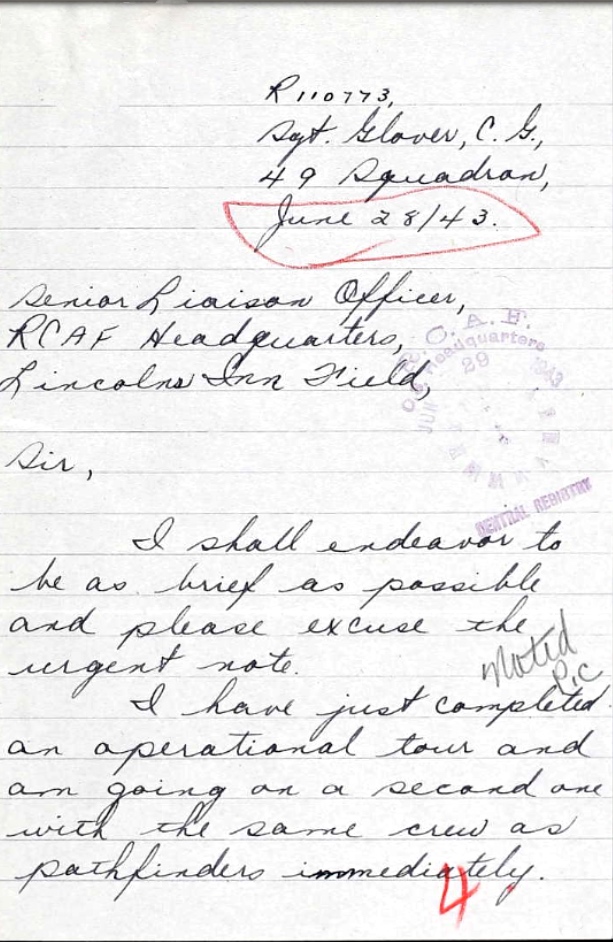 R110773,
Sgt. Glover, C. G.,
49 Squadron,
June 28/43.
Senior Liaison Officer,
RCAF Headquarters,
Lincolns Inn Field,
R. C. A. F.
O/S Headquarters
29 1943
CENTRAL REGISTRY
Sir,
I shall endeavor to
be as brief as possible
and please excuse the
urgent note.
Noted
I have just completed
an operational tour and
am going on a second one
with the same crew as
pathfinders immediately.
4